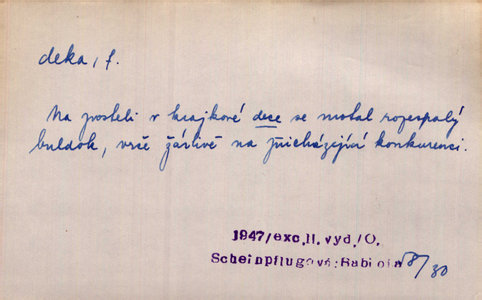 deka, f.
Na posteli v krajkové dece se motal rozespalý
buldok, vrče žárlivě na přicházející konkurenci.
1947/exc.II.vyd./O.
Scheinpflugová:Babiola
8/80